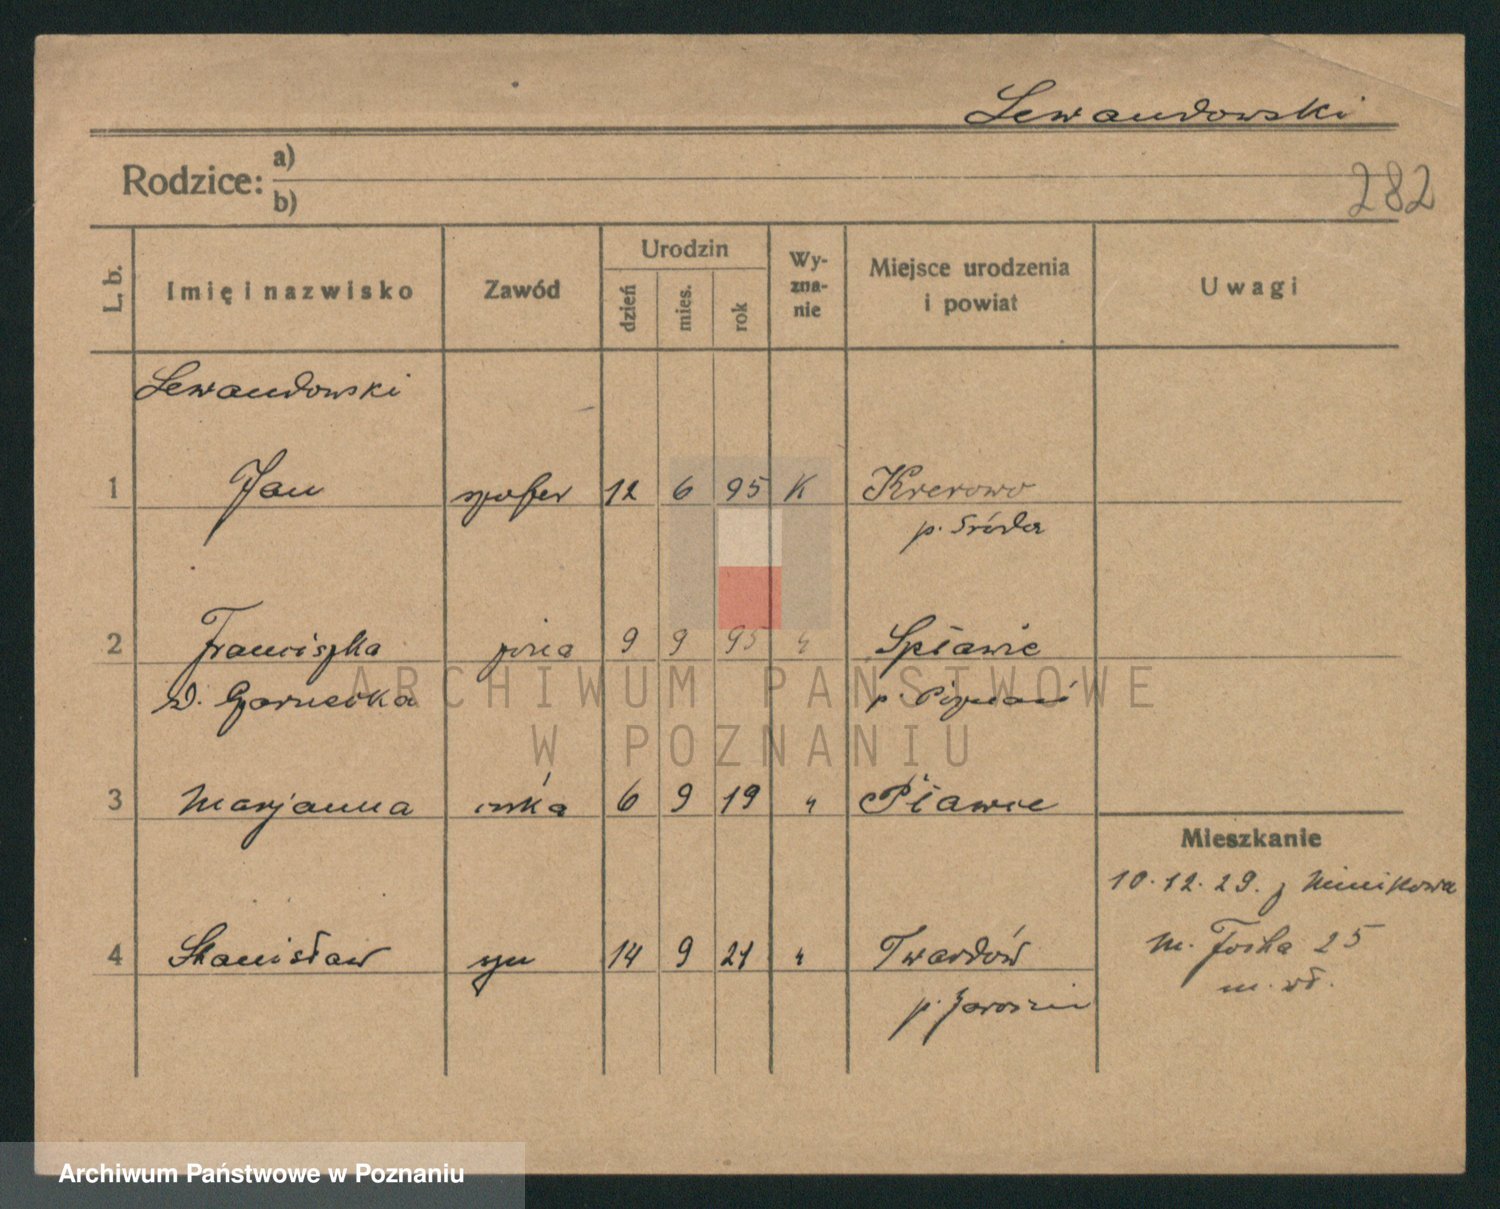 Lewandowski
Rodzice: a)
b)
282
L. b. Imię i nazwisko Zawód Urodzin dzień mies. rok Wy-zna-nie Miejsce urodzenia i powiat Uwagi
Lewandowski
1 Jan szofer 12 6 95 K Krerowo
p. Środa
2 Franciszka żona 9 9 95 " Spławie
p. Poznań
3 Marjanna córka 6 9 19 " Pławce
Mieszkanie
10.12.29. z Minikowa
4 Stanisław syn 14 9 21 " Twardów
m. Focha 25
p. Jarocin
m. wł.
ARCHIWUM PAŃSTWOWE
W POZNANIU
Archiwum Państwowe w Poznaniu